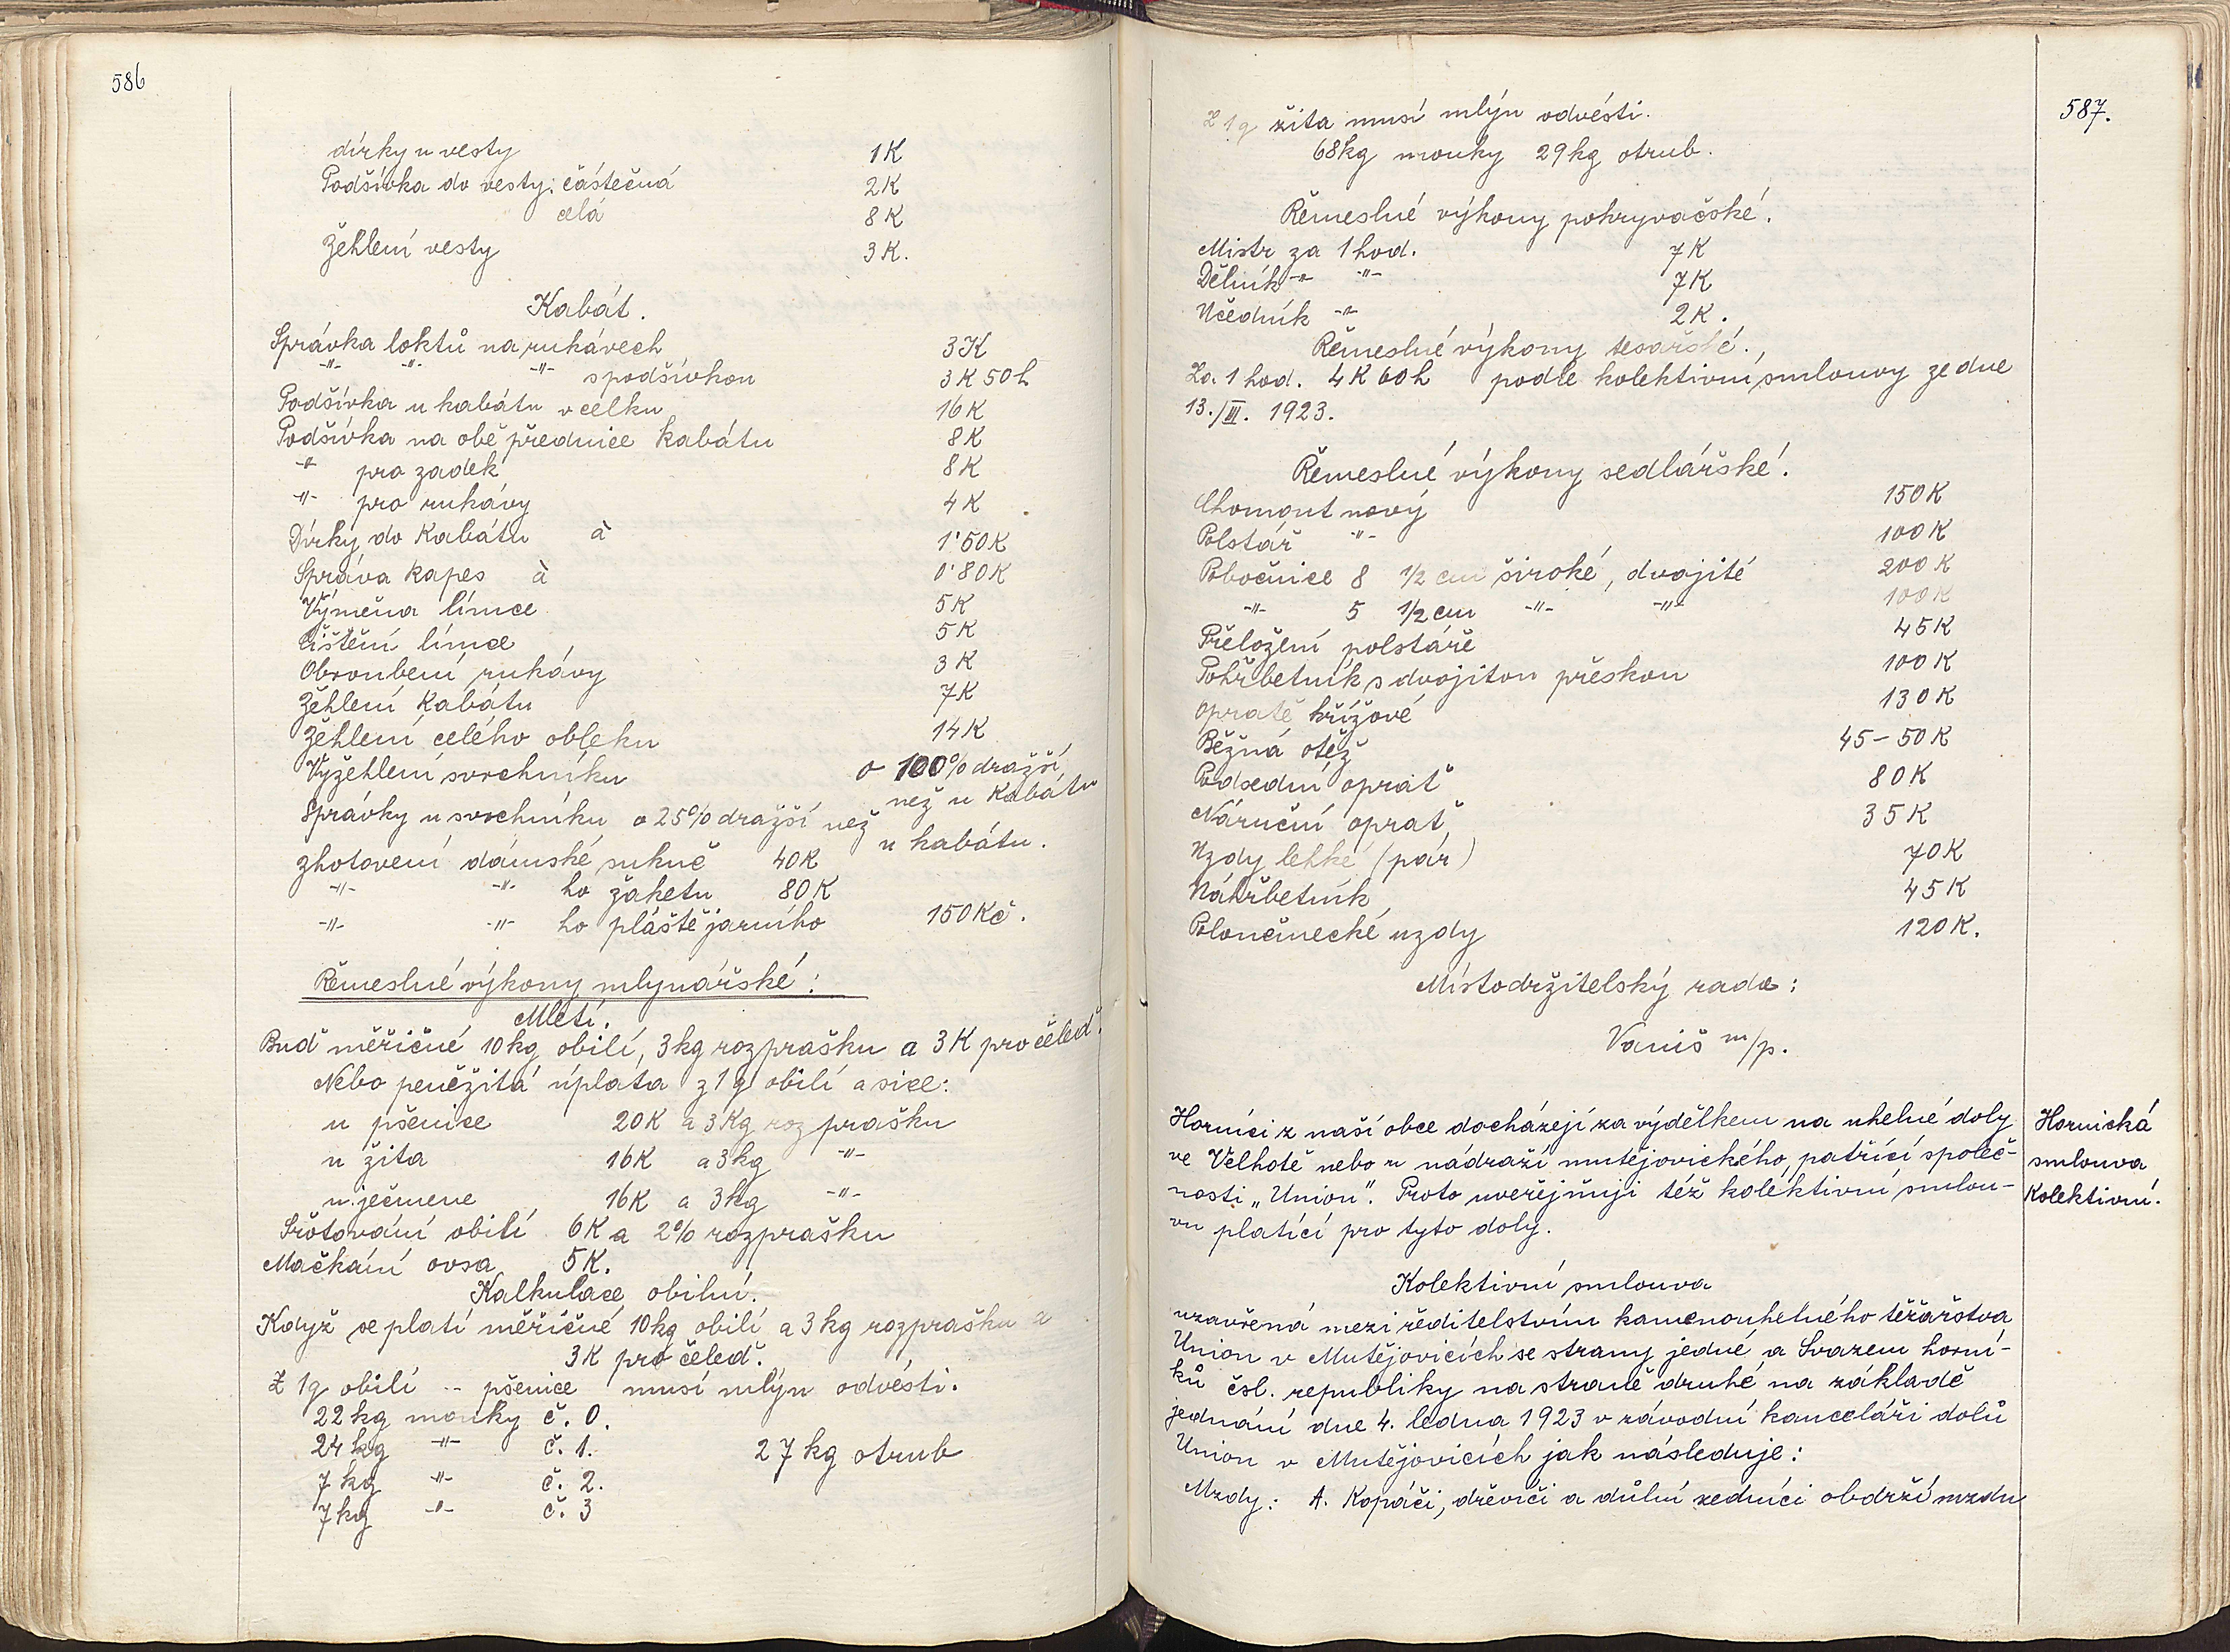 586
dírky u vesty 1K
Podšívka do vesty: částečná 2K
celá 8K
Žehlení vesty 3K.
Kabát.
Správka loktů na rukávech 3K
-"- -"- -"- s podšívkou 3K 50h
Podšívka u kabátu v celku 16K
Podšívka na obě přednice kabátu 8K
-"- pro zadek 8K
-"- pro rukávy 4K
Dírky do kabátu à 1'50K
Správa kapes à 0'80K
Výměna límce 5K
Čištění límce 5K
Obroubení rukávy 3K
Žehlení kabátu 7K
Žehlení celého obleku 14K
Vyžehlení svrchníku o 100% dražší
než u kabátu
Správky u svrchníku o 25% dražší než
u kabátu.
zhotovení dámské sukně 40K
-"- -"- ho žaketu 80K
-"- -"- ho pláště jarního 150Kč.
Řemeslné výkony mlynářské:
Mletí.
Buď měřičné 10kg obilí, 3kg rozprašku a 3K pro čeleď.
Nebo peněžitá úplata z 1q obilí a sice:
u pšenice 20K a 3Kg rozprašku
u žita 16K a 3kg -"-
u ječmene 16K a 3kg -"-
Šrotování obilí 6K a 2% rozprašku
Mačkání ovsa 5K.
Kalkulace obilní.
Když se platí měřičné 10kg obilí a 3kg rozprašku a
3K pro čeleď.
Z 1q obilí -- pšenice musí mlýn odvésti.
22kg mouky č. 0.
24kg -"- č. 1. 27kg otrub
7kg -"- č. 2.
7kg -"- č. 3
587.
Z 1q žita musí mlýn odvésti.
68kg mouky 29kg otrub.
Řemeslné výkony pokryvačské.
Mistr za 1 hod. 7K
Dělník -"- -"- 7K
Učedník -"- 2K.
Řemeslné výkony tesařské.
Za 1 hod. 4K 60h podle kolektivní smlouvy ze dne
13./III. 1923.
Řemeslné výkony sedlářské.
Chomout nový 150K
Polstář -"- 100K
Pobočnice 8 1/2 cm široké, dvojité 200K
-"- 5 1/2 cm -"- -"- 100K
Přeložení polstáře 45K
Pohřbetník s dvojitou přeskou 100K
Opratě křížové 130K
Běžná otěž 45-50K
Podsední oprať 80K
Náruční oprať 35K
Uzdy lehké (pár) 70K
Náhřbetník 45K
Poloněmecké uzdy 120K.
Místodržitelský rada:
Vaniš m/p.
Horníci z naší obce docházejí za výdělkem na uhelné doly
ve Velhotě nebo u nádraží mutějovického, patřící společ-
nosti "Union". Proto uveřejňuji též kolektivní smlou-
vu platící pro tyto doly.
Hornická
smlouva
Kolektivní.
Kolektivní smlouva
uzavřená mezi ředitelstvím kamenouhelného těžařstva
Union v Mutějovicích se strany jedné a Svazem horní-
ků čsl. republiky na straně druhé na základě
jednání dne 4. ledna 1923 v závodní kanceláři dolů
Union v Mutějovicích jak následuje:
Mzdy: A. Kopáči, dřeviči a důlní zedníci obdrží mzdu